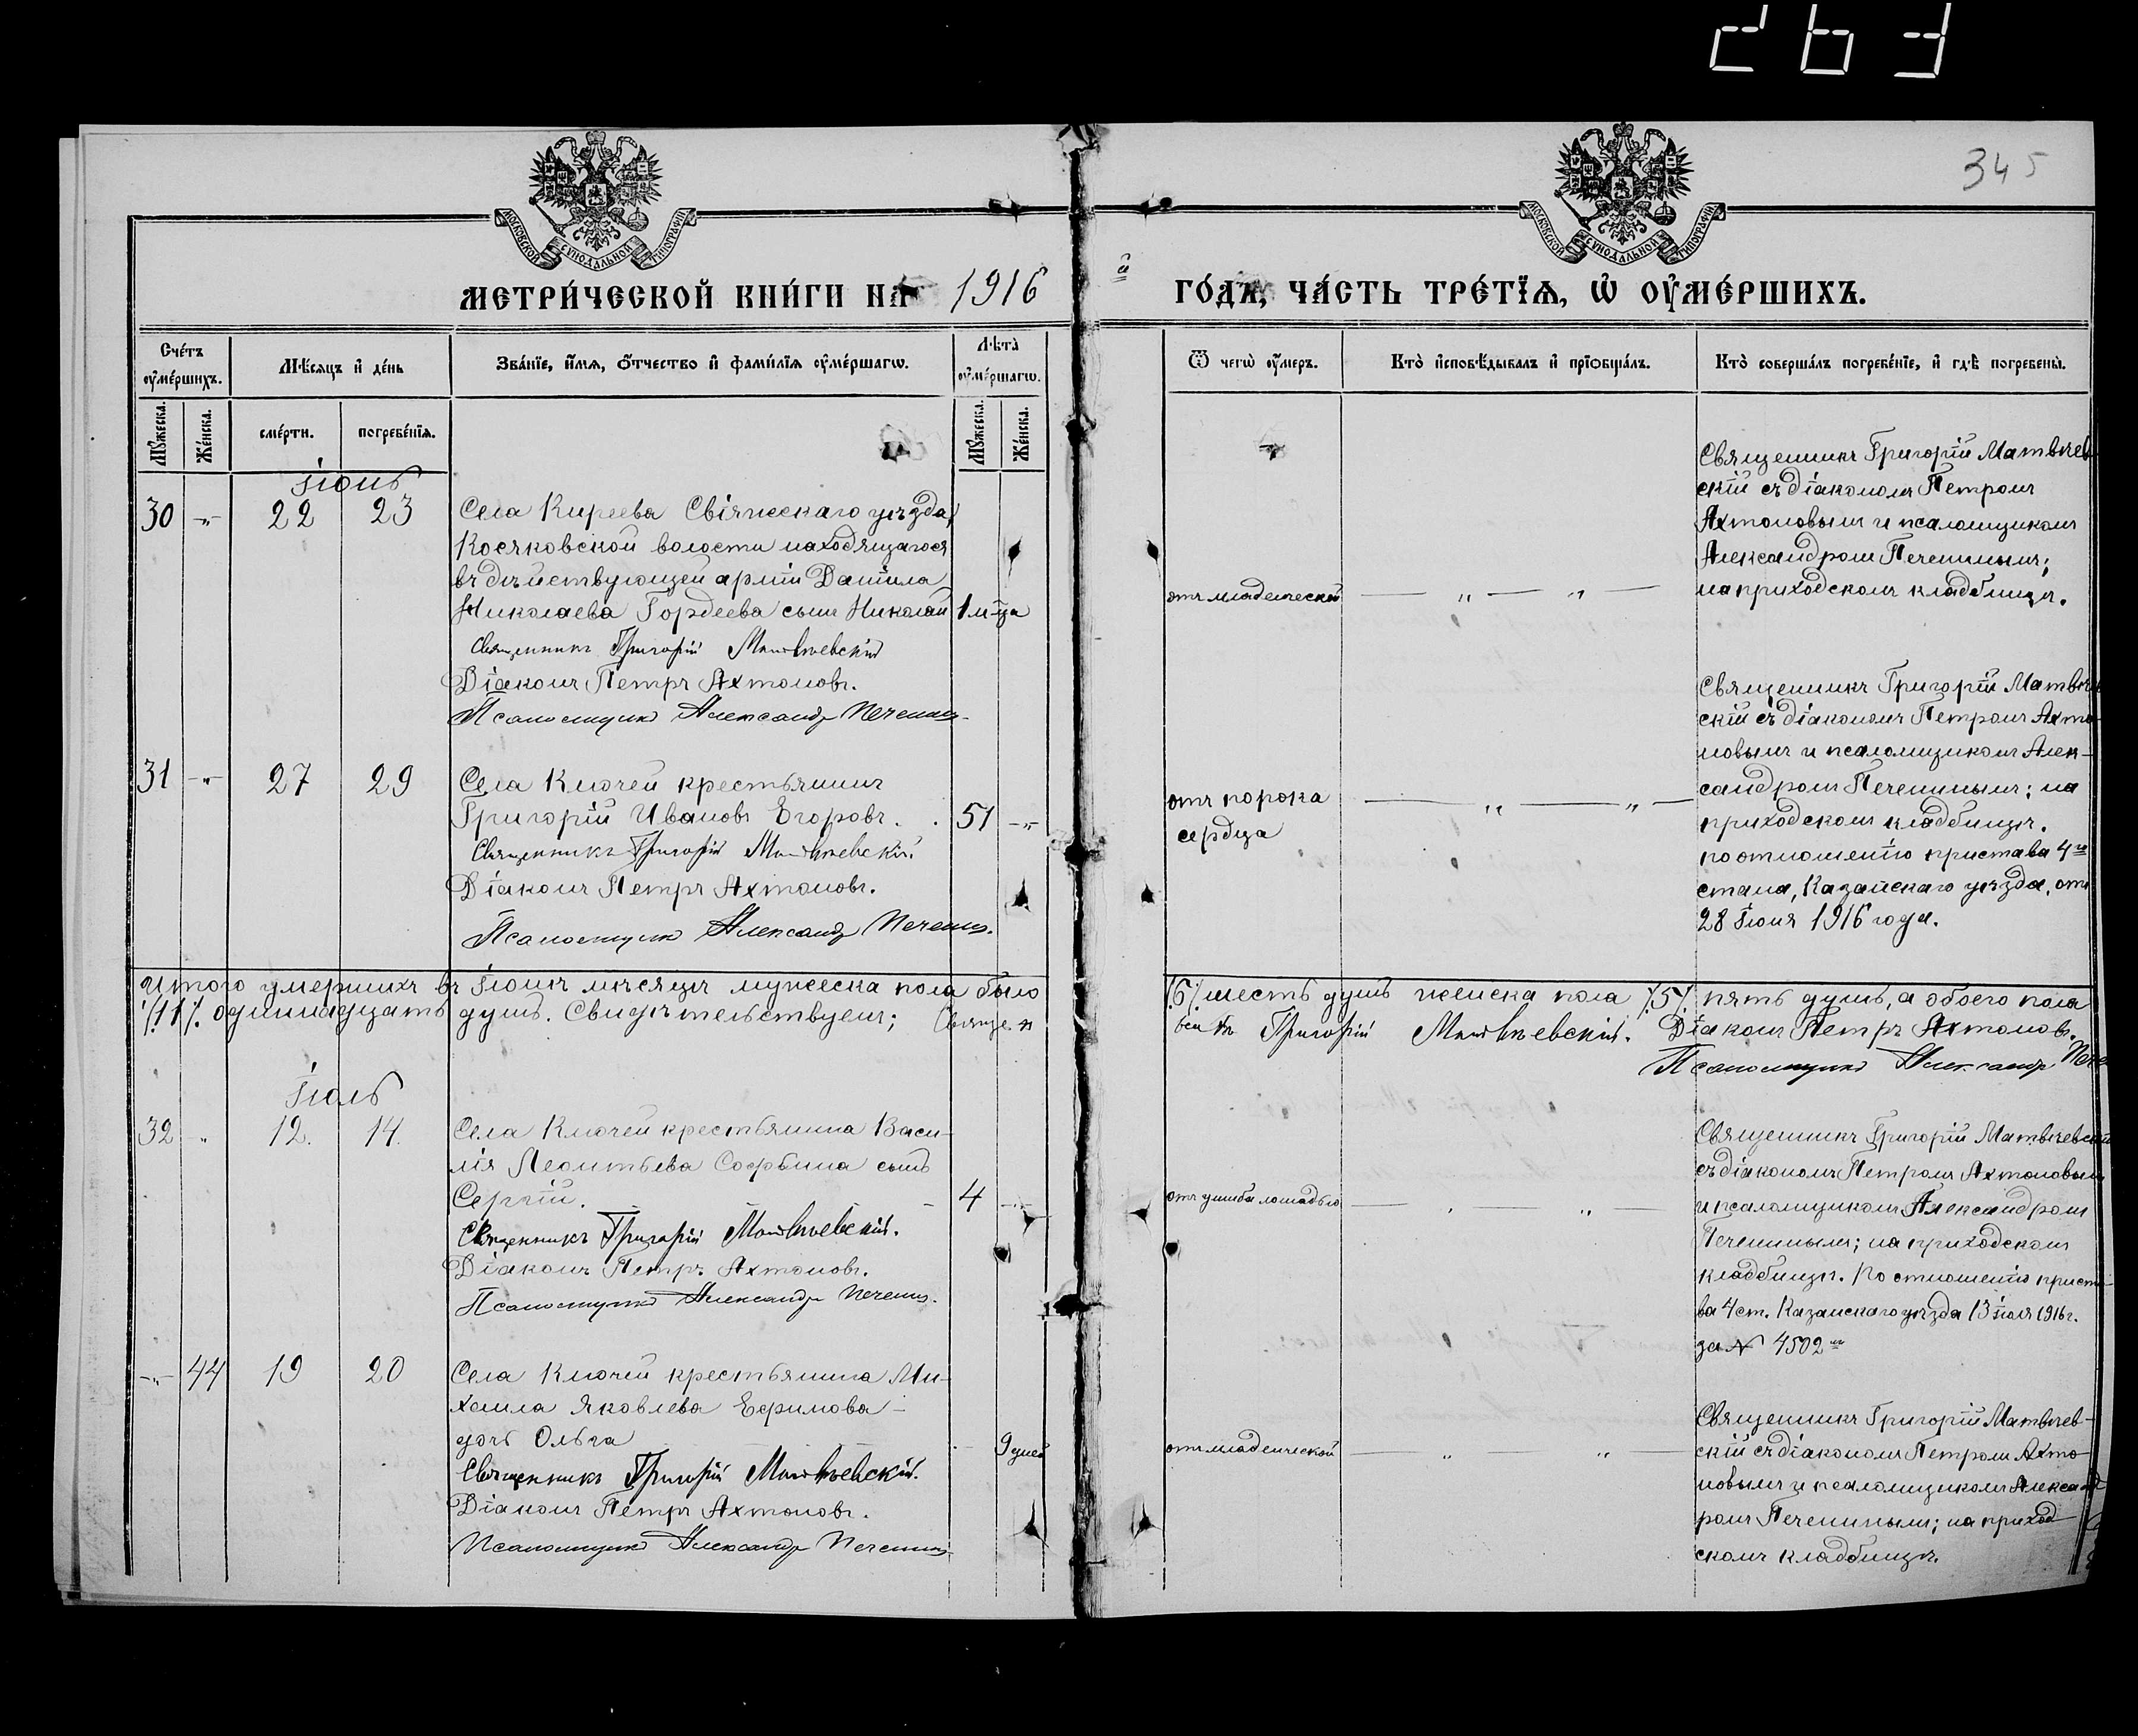 263
345
МОСКОВСКОЙ СѴНОДАЛЬНОЙ ТИПОГРАФІИ
МОСКОВСКОЙ СѴНОДАЛЬНОЙ ТИПОГРАФІИ
МЕТРИ́ЧЕСКОЙ КНИ́ГИ НА 1916 й ГО́ДА, ЧА́СТЬ ТРЕ́ТЇѦ, Ѡ ОУ҆МЕ́РШИХЪ.
Сче́тъ оу҆ме́ршихъ.
Мꙋ́жеска.
Же́нска.
Мѣ́сяцъ и҆ де́нь
сме́рти.
погребе́нїѧ.
Зва́нїе, и҆́мѧ, ѻ҆́тчество и҆ фами́лїѧ оу҆ме́ршагѡ.
Лѣ́та оу҆ме́ршагѡ.
Мꙋ́жеска.
Же́нска.
Ѿ чегѡ̀ оу҆́меръ.
Кто̀ и҆сповѣ́дывалъ и҆ прїѻбща́лъ.
Кто̀ соверша́лъ погребе́нїе, и҆ гдѣ̀ погребены̀.
Іюнь
30 -„- 22 23
Села Киреева Свіяжскаго уѣзда,
Косяковской волости находящагося
въ дѣйствующей арміи Даніила
Николаева Гордеева сынъ Николай 1 м-ца
Священникъ Григорій Матвѣевскій
Діаконъ Петръ Ахтоновъ.
Псаломщикъ Александръ Печенинъ.
отъ младенческой — „ — „ —
Священникъ Григорій Матвѣев-
скій съ діакономъ Петромъ
Ахтоновымъ и псаломщикомъ
Александромъ Печенинымъ;
на приходскомъ кладбищѣ.
31 -„- 27 29
Села Ключей крестьянинъ
Григорій Ивановъ Егоровъ. 51 -„-
Священникъ Григорій Матвѣевскій.
Діаконъ Петръ Ахтоновъ.
Псаломщикъ Александръ Печенинъ.
отъ порока
сердца — „ — „ —
Священникъ Григорій Матвѣев
скій съ діакономъ Петромъ Ахто-
новымъ и псаломщикомъ Алек-
сандромъ Печенинымъ; на
приходскомъ кладбищѣ.
по отношенію пристава 4го
стана, Казанскаго уѣзда, отъ
28 Іюня 1916 года.
Итого умершихъ въ Іюнѣ мѣсяцѣ мужеска пола было /6/ шесть душъ женска пола /5/ пять душъ, а обоего пола
/11/ одиннадцать душъ. Свидѣтельствуемъ; Священникъ Григорій Матвѣевскій. Діаконъ Петръ Ахтоновъ.
Псаломщикъ Александръ Пече
Іюль
32 „ 12. 14.
Села Ключей крестьянина Васи-
лія Леонтьева Софьина сынъ
Сергій. 4 -„-
Священникъ Григорій Матвѣевскій.
Діаконъ Петръ Ахтоновъ.
Псаломщикъ Александръ Печенинъ.
отъ ушиба лошадью — „ — „ —
Священникъ Григорій Матвѣевскій
съ діакономъ Петромъ Ахтоновымъ
и псаломщикомъ Александромъ
Печенинымъ; на приходскомъ
кладбищѣ. По отношенію приста-
ва 4 ст. Казанскаго уѣзда 13 Іюля 1916 г.
за № 4502
-„- 44 19 20
Села Ключей крестьянина Ми-
хаила Яковлева Ефимова -
дочь Ольга 9 дней
Священникъ Григорій Матвѣевскій.
Діаконъ Петръ Ахтоновъ.
Псаломщикъ Александръ Печенинъ
отъ младенческой — „ — „ —
Священникъ Григорій Матвѣев-
скій съ діакономъ Петромъ Ахто-
новымъ и псаломщикомъ Александ
ромъ Печенинымъ; на приход
скомъ кладбищѣ.